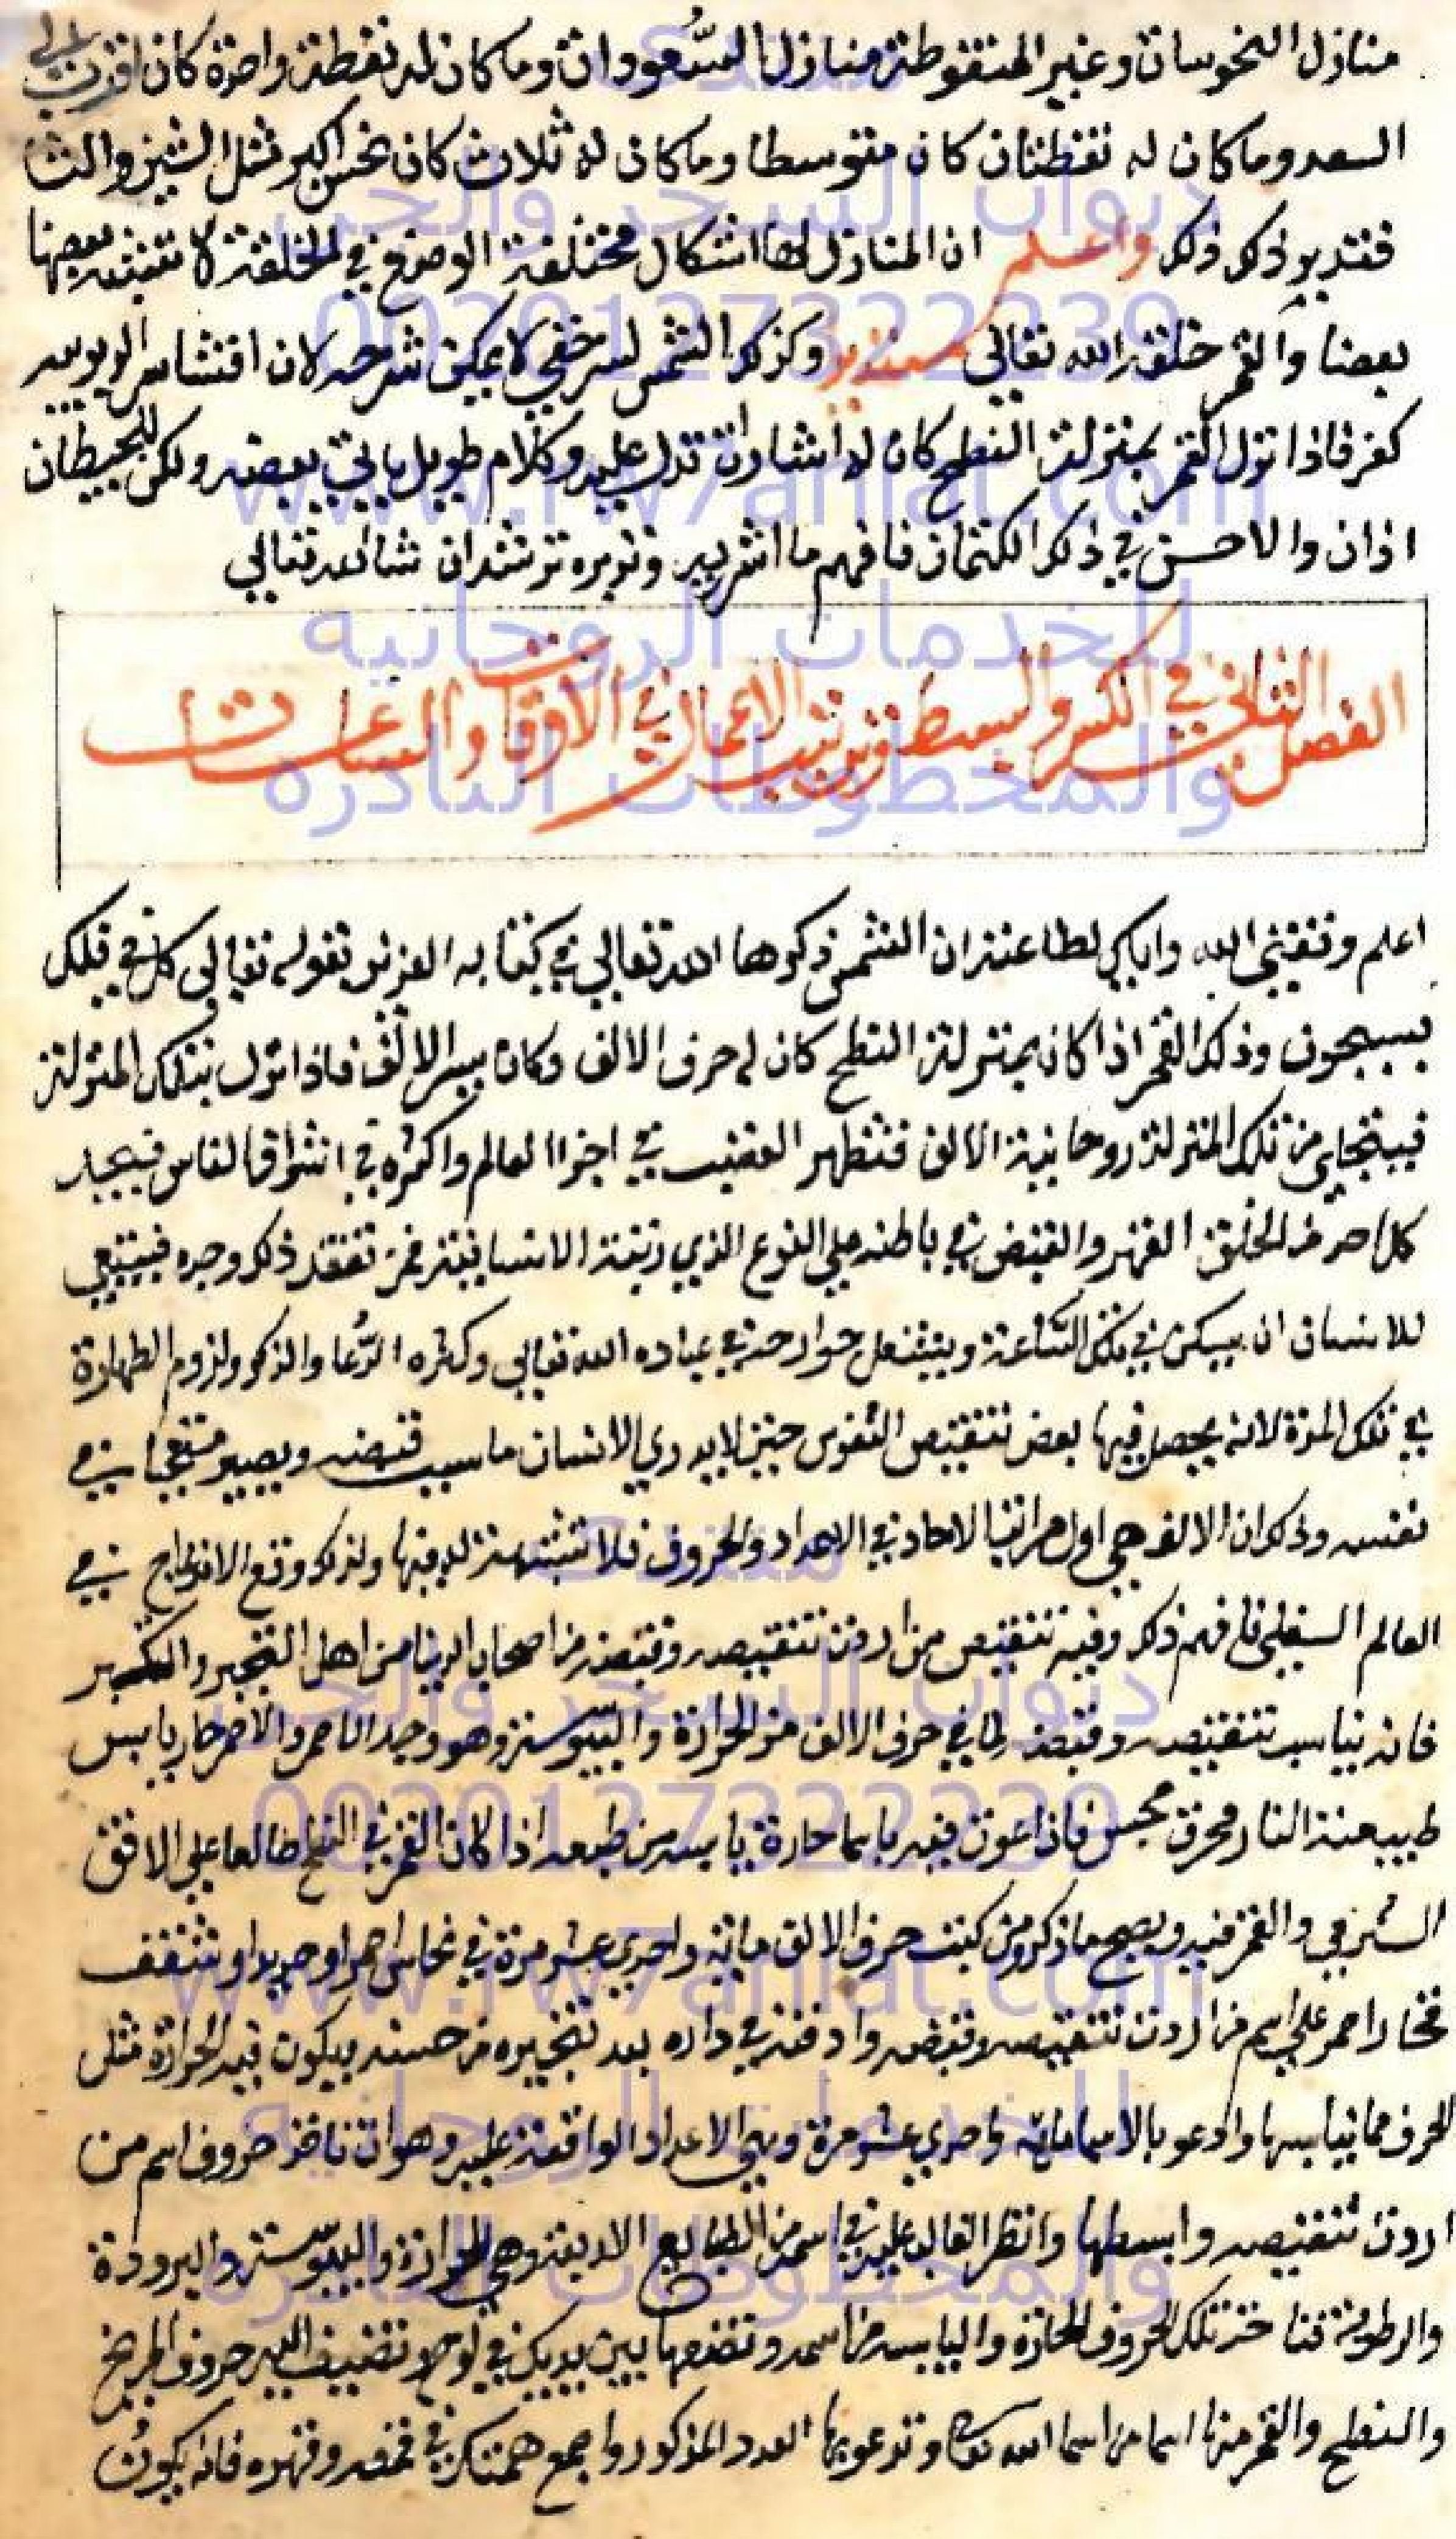 منازل النحوسات وغير المنقوطة منازل السُّعودات وما كان له نقطة واحدة كان اقرب الي
السعد وما كان له نقطتان كان متوسطا وما كان له ثلاث كان نحس اكبر مثل الشين والثا
فتدبر ذلك واعلم ان المنازل لها اشكال مختلفة الوضع في الخلقة لا تشبه بعضها
بعضا والقمر خلقه الله تعالي مستدير وكذلك الشمس لسر خفي لا يمكن شرحه لان افتشا سر الربوبيه
كفر فاذا نزل القمر بمنزلة النطح كان له اشارات تدل عليه وكلام طويل ياتي بعضه ولكن للحيطان
اذان والاحسن في ذلك الكتمان فافهم ما اشر اليه وتدبره ترشد ان شا الله تعالي
الفصل الثاني في الكسر والبسط وترتيب الاعمال في الاوقات والساعات
اعلم وفقني الله واياك لطاعته ان الشمس ذكرها الله تعالي في كتابه العزيز بقوله تعالي كل في فلك
يسبحون وذلك القمر اذا كان بمنزلة النطح كان له حرف الالف وكان سر الالف فاذا نزل بتلك المنزلة
فيتجلي من تلك المنزلة روحانية الالف فتظهر الغضب في اجزا العالم واكثره في اشراق الناس فيجد
كل احد من الخلق القهر والقبض في باطنه علي النوع الذي رتبة الانسانية فمن تفقد ذلك وجده فينبغي
للانسان ان يسكن في تلك الساعة ويشغل جوارحه في عباده الله تعالي وكثره الدُّعا والذكر ولزوم الطهارة
في تلك المدة لانه يحصل فيها بعض تنقيص النفوس حتي لا يدري الانسان ما سبب قبضه ويصير متعجبا في
نفسه وذلك ان الالف هي اول مراتب الاحاد في الاعداد والحروف فلا تشبهة لديها ولذلك وقع الانزعاج في
العالم السفلي فافهم ذلك وفيه تنقيص من اردت تنقيصه وقبضه من اصحاب الدنيا من اهل التجبر والتكبر
فانه يناسب تنقيصه وقبضه لما في حرف الالف من الحرارة واليبوسة وهو وجد الاحمر والاحمر حار يابس
طبيعة النار محرق نحس فاذا دعوت فيه باسما حارة يابسه من طبعه اذا كان القمر في النطح طالعا علي الافق
الشرقي والقمر فيه ويصح ما ذكر ومن كتب حرف الالف مايه واحدي عشر مرة في نحاس احمر او حديد او شقف
فخار احمر علي اسم من اردت تنقيصه وقبضه وادفنه في داره بعد تبخيره من حسنه بيكون فيه الحرارة مثل
الحرف مما يناسبها وادعو بالاسما مايه واحدي عشر مرة وهي الاعداد الواقعة عليه وهو ان تاخذ حروف اسم من
اردت تنقيصه وابسطها وانظر الغالب عليه في اسمه من الطبايع الاربعة وهي الحرارة واليبوسة والبرودة
والرطوبة فتاخذ تلك الحروف الحارة واليابسه من اسمه وتضعها بين يديك في لوح وتضيف اليه حروف المريخ
والنطح والقمر منها اسما من اسما الله تعالي وتدعو بها العدد المذكور واجمع همتك في قمعه وقهره فانه يكون